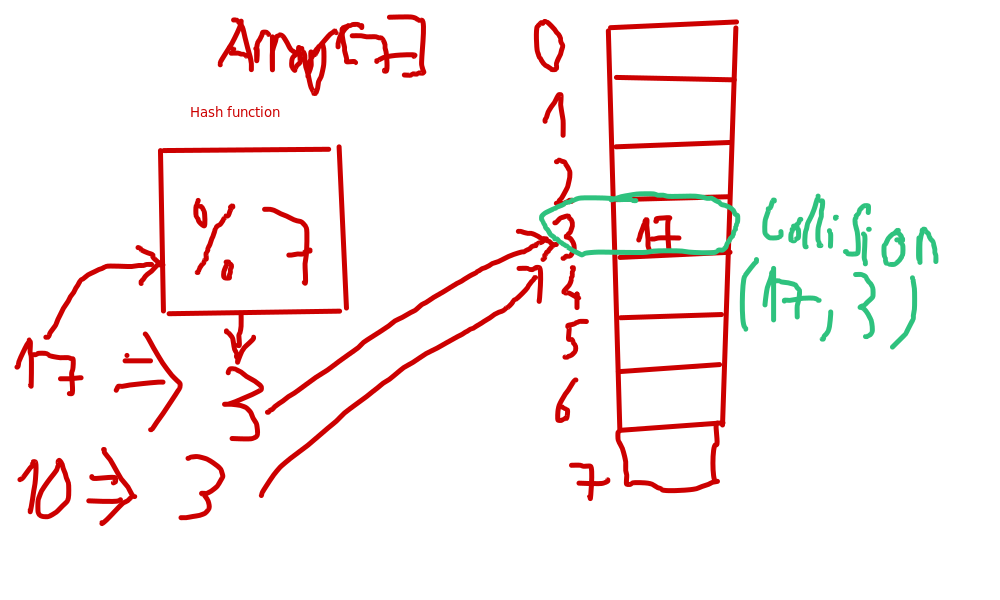 Array[7]
Hash function
% 7
17 => 3
10 => 3
0
1
2
3 17
4
5
6
7
Collision
(17, 3)